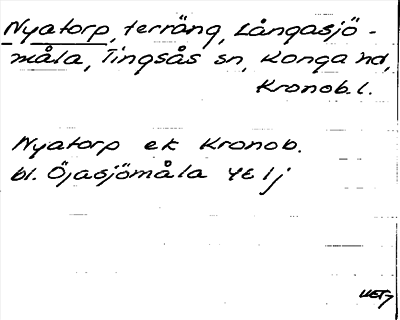 Nyatorp, terräng, Långasjö-
måla, Tingsås sn, Konga hd,
Kronob. l.
Nyatorp ek Kronob.
bl. Öjasjömåla 4E 1j